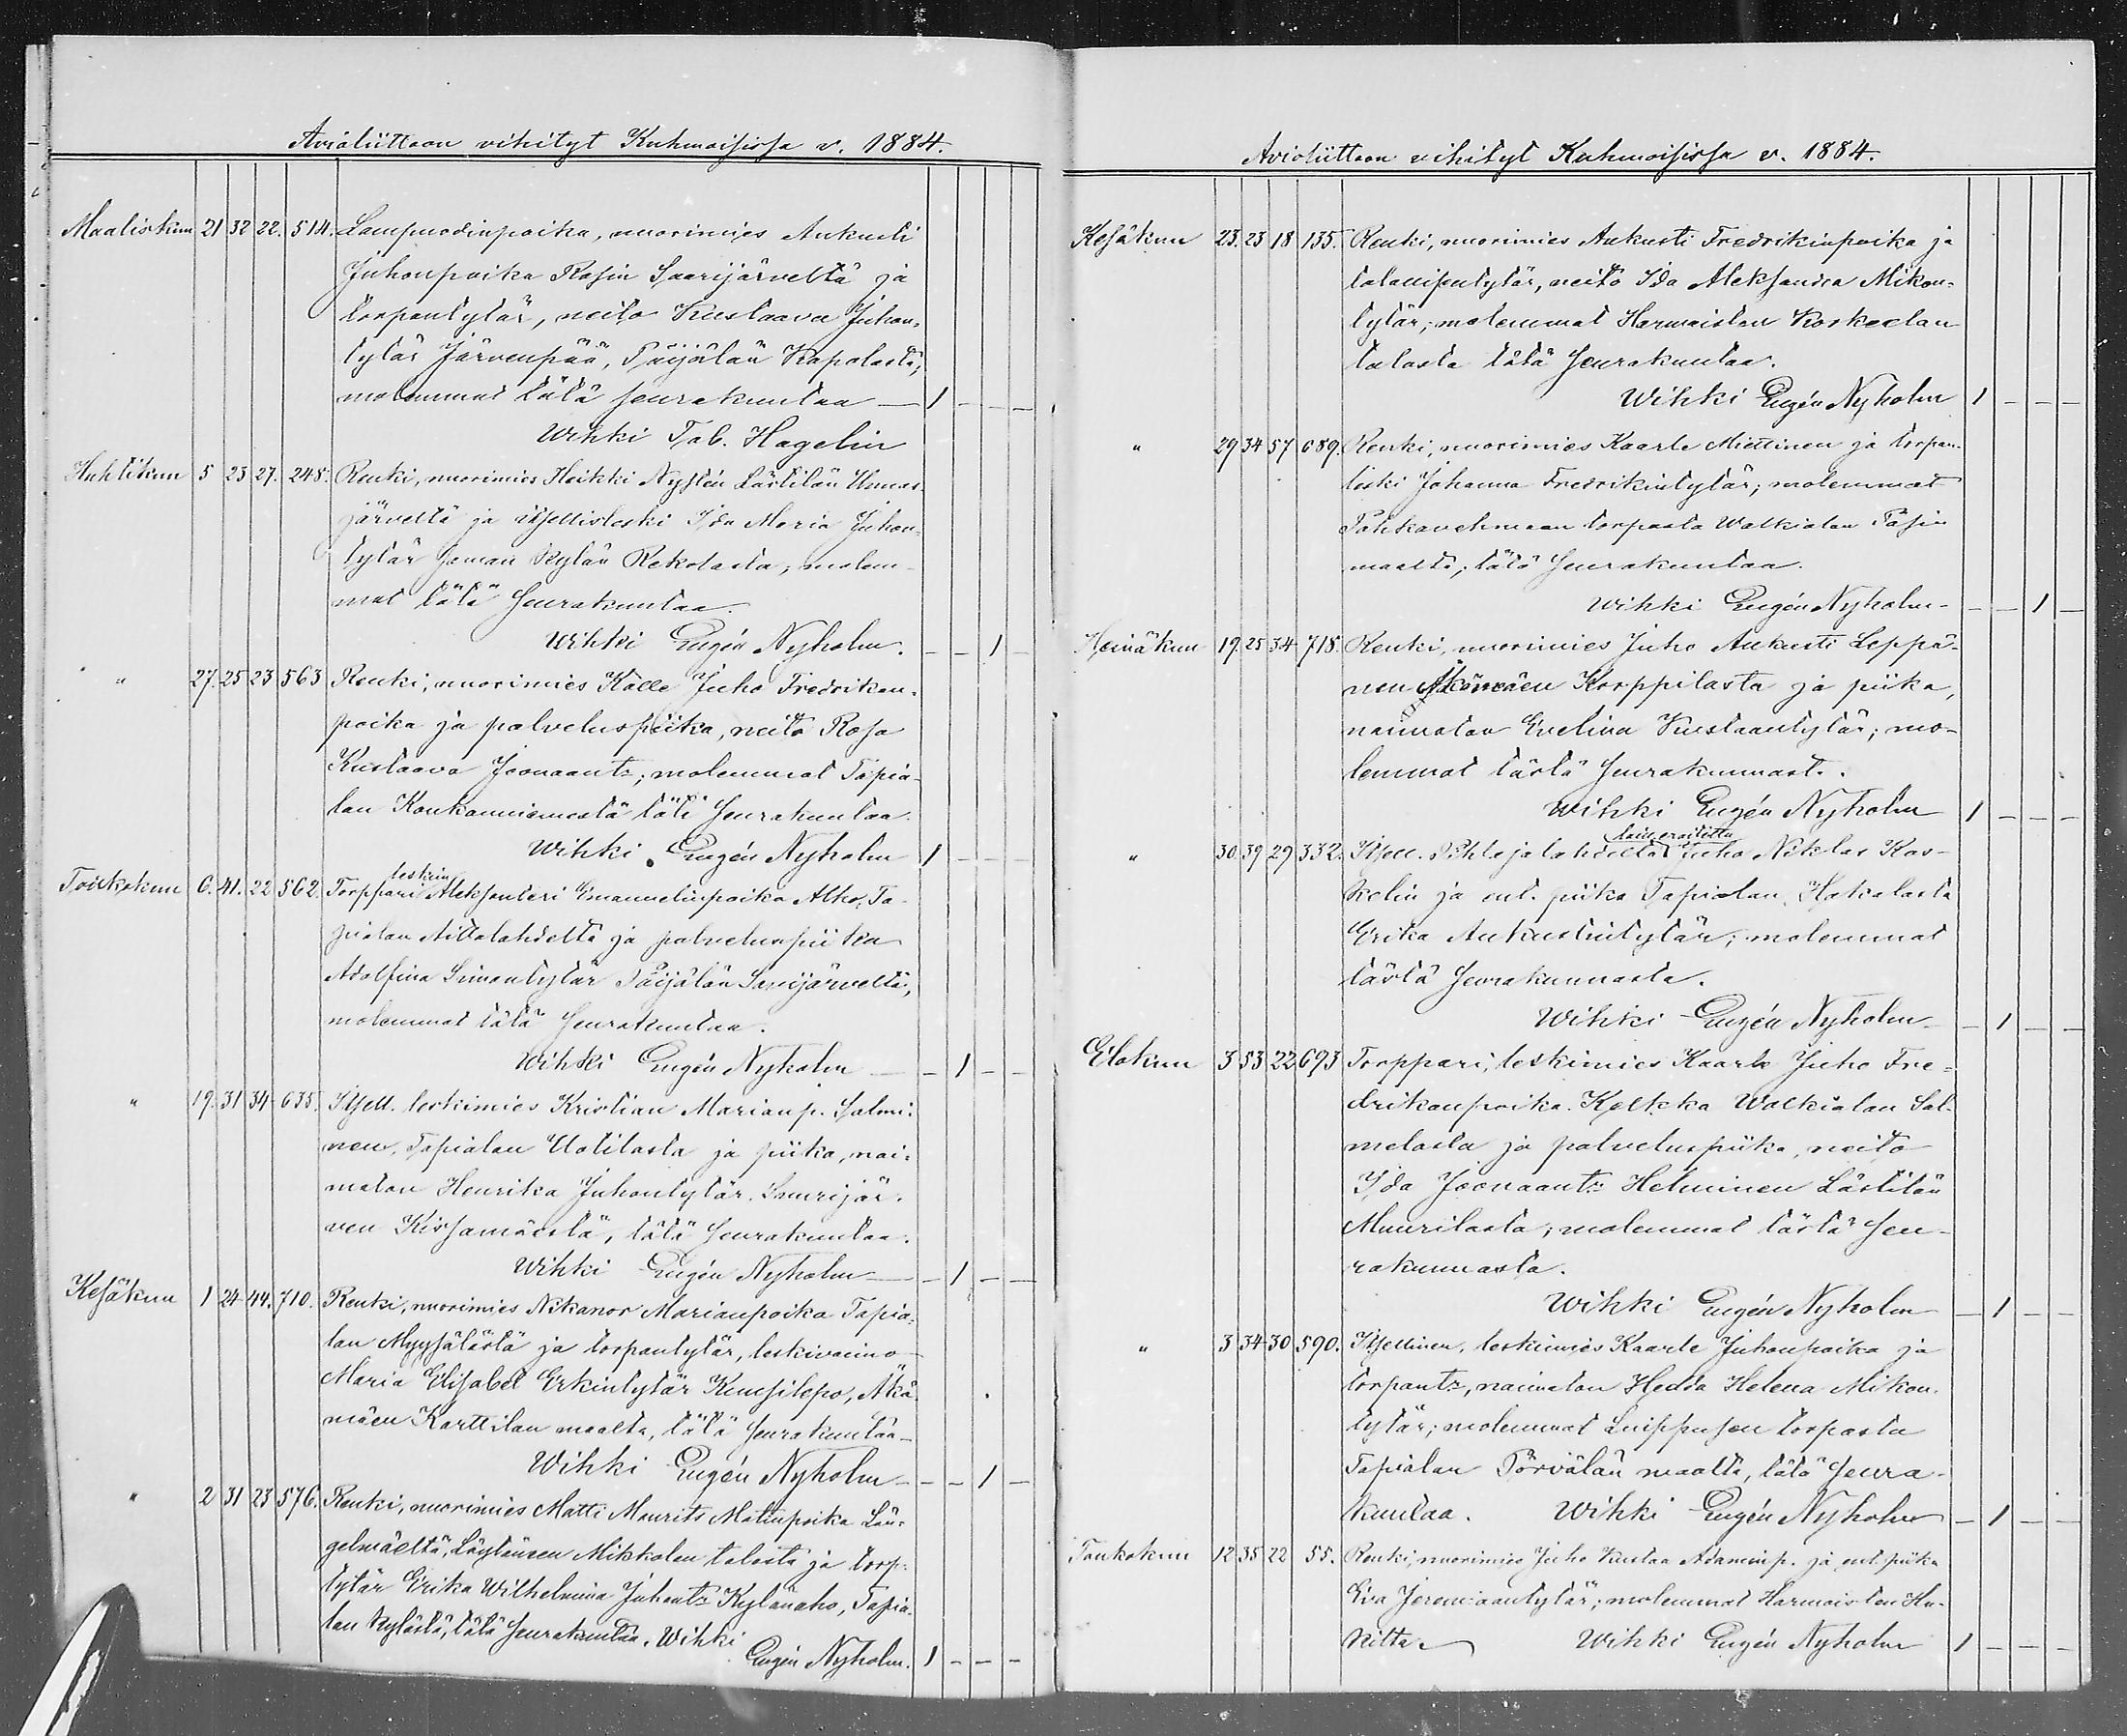 Avioliittoon vihityt Kuhmoisissa v. 1884.
Maaliskuun 21 32 22. 514. Lampuodinpoika, nuorimies Aukusti
Juhonpoika Rasin Saarijärveltä ja
torpantytär, neito Kustaava Juhon-
tytär Järvenpää, Päijälän Kapalasta;
molemmat tätä seurakuntaa — 1 — — —
Wihki Tab. Hagelin
Huhtikuun 5 23 27. 248. Renki, nuorimies Heikki Nysten Lästilän Unnas-
järveltä ja itsellisleski Ida Maria Juhon-
tytär saman kylän Rekolasta; molem-
mat tätä seurakuntaa.
Wihki Eugén Nyholm. — — 1 —
" 27. 25 23 563 Renki, nuorimies Kalle Juho Fredrikin-
poika ja palveluspiika, neito Rosa
Kustaava Joonaantr; molemmat Tapia-
lan Koukanniemestä tätä seurakuntaa.
Wihki Eugén Nyholm 1 — — —
Toukokuun 6. 41. 22 562. Torppari leskim Aleksanteri Emanuelinpoika Alho, Ta-
pialan Aittalahdelta ja palveluspiika
Adolfina Simontytär Päijälän Sarvijärveltä,
molemmat tätä seurakuntaa.
Wihki Eugén Nyholm — — 1 — —
" 19. 31 34 635. Itsell. leskimies Kristian Marianp. Salmi-
nen, Tapialan Uotilasta ja piika, nai-
maton Henrika Juhontytär Saurijär-
ven Kissamäestä, tätä seurakuntaa.
Wihki Eugén Nyholm — — 1 — —
Kesäkuun 1 24 44. 710. Renki, nuorimies Nikanor Marianpoika Tapia-
lan Myysälästä ja torpantytär, leskivaimo
Maria Elisabet Erkintytär Kuusilepo, Äkä-
mäen Karttilan maalta, tätä seurakuntaa
Wihki Eugén Nyholm — — — 1 —
" 2 31 23 576. Renki, nuorimies Matti Maurits Matinpoika Län-
gelmäeltä, Löytänen Mikkolan talosta ja torp.
tytär Erika Wilhelmina Juhontr Kylänaho, Tapia-
lan kylästä, tätä seurakuntaa. Wihki
Eugén Nyholm. 1 — — —
Avioliittoon vihityt Kuhmoisissa v. 1884.
Kesäkuun 23. 23 18 135. Renki, nuorimies Aukusti Fredrikinpoika ja
talollisentytär, neito Ida Aleksandra Mikon-
tytär; molemmat Harmoisten Koskeelan
talosta tätä seurakuntaa.
Wihki Eugén Nyholm 1 — — —
" 29 34 57 689. Renki, nuorimies Kaarle Miettinen ja torpan-
leski Johanna Fredrikintytär; molemmat
torpasta Walkialan Pasin
maalta; tätä seurakuntaa.
Wihki Eugén Nyholm — — — 1 —
Heinäkuun 19. 25 34 718. Renki, nuorimies Juho Aukusti Leppä-
nen Äkämäen Korppilasta ja piika,
naimaton Evelina Kustaantytär; mo-
lemmat tästä seurakunnast.
Wihki Eugén Nyholm 1 — — —
" 30 39 29 332. Itsell. Pihlajalahdelta laill. eroitettu Juho Niklas Kas-
kelin ja ent. piika Tapialan Hakalasta
Erika Aukustintytär; molemmat
tästä seurakunnasta.
Wihki Eugén Nyholm — — 1 — —
Elokuun 3 53 22 693 Torppari, leskimies Kaarle Juho Fre-
drikinpoika Kyltkka Walkialan Sal-
melasta ja palveluspiika, neito
Ida Joonaantr Helminen Lästilän
Muurilasta; molemmat tästä seu-
rakunnasta.
Wihki Eugén Nyholm — 1 — —
" 3 34 30 590. Itsellinen, leskimies Kaarle Juhonpoika ja
torpantr, naimaton Hedda Helena Mikon-
tytär; molemmat Luippusen torpasta
Tapialan Törvälän maalta, tätä seura-
kuntaa. Wihki Eugén Nyholm — 1 — —
Toukokuun 12 35 22 55. Renki, nuorimies Juho Kustaa Adaminp. ja ent. piika
Eva Jeremiaantytär; molemmat Harmoisten Hu-
kitta. Wihki Eugén Nyholm 1 — — —